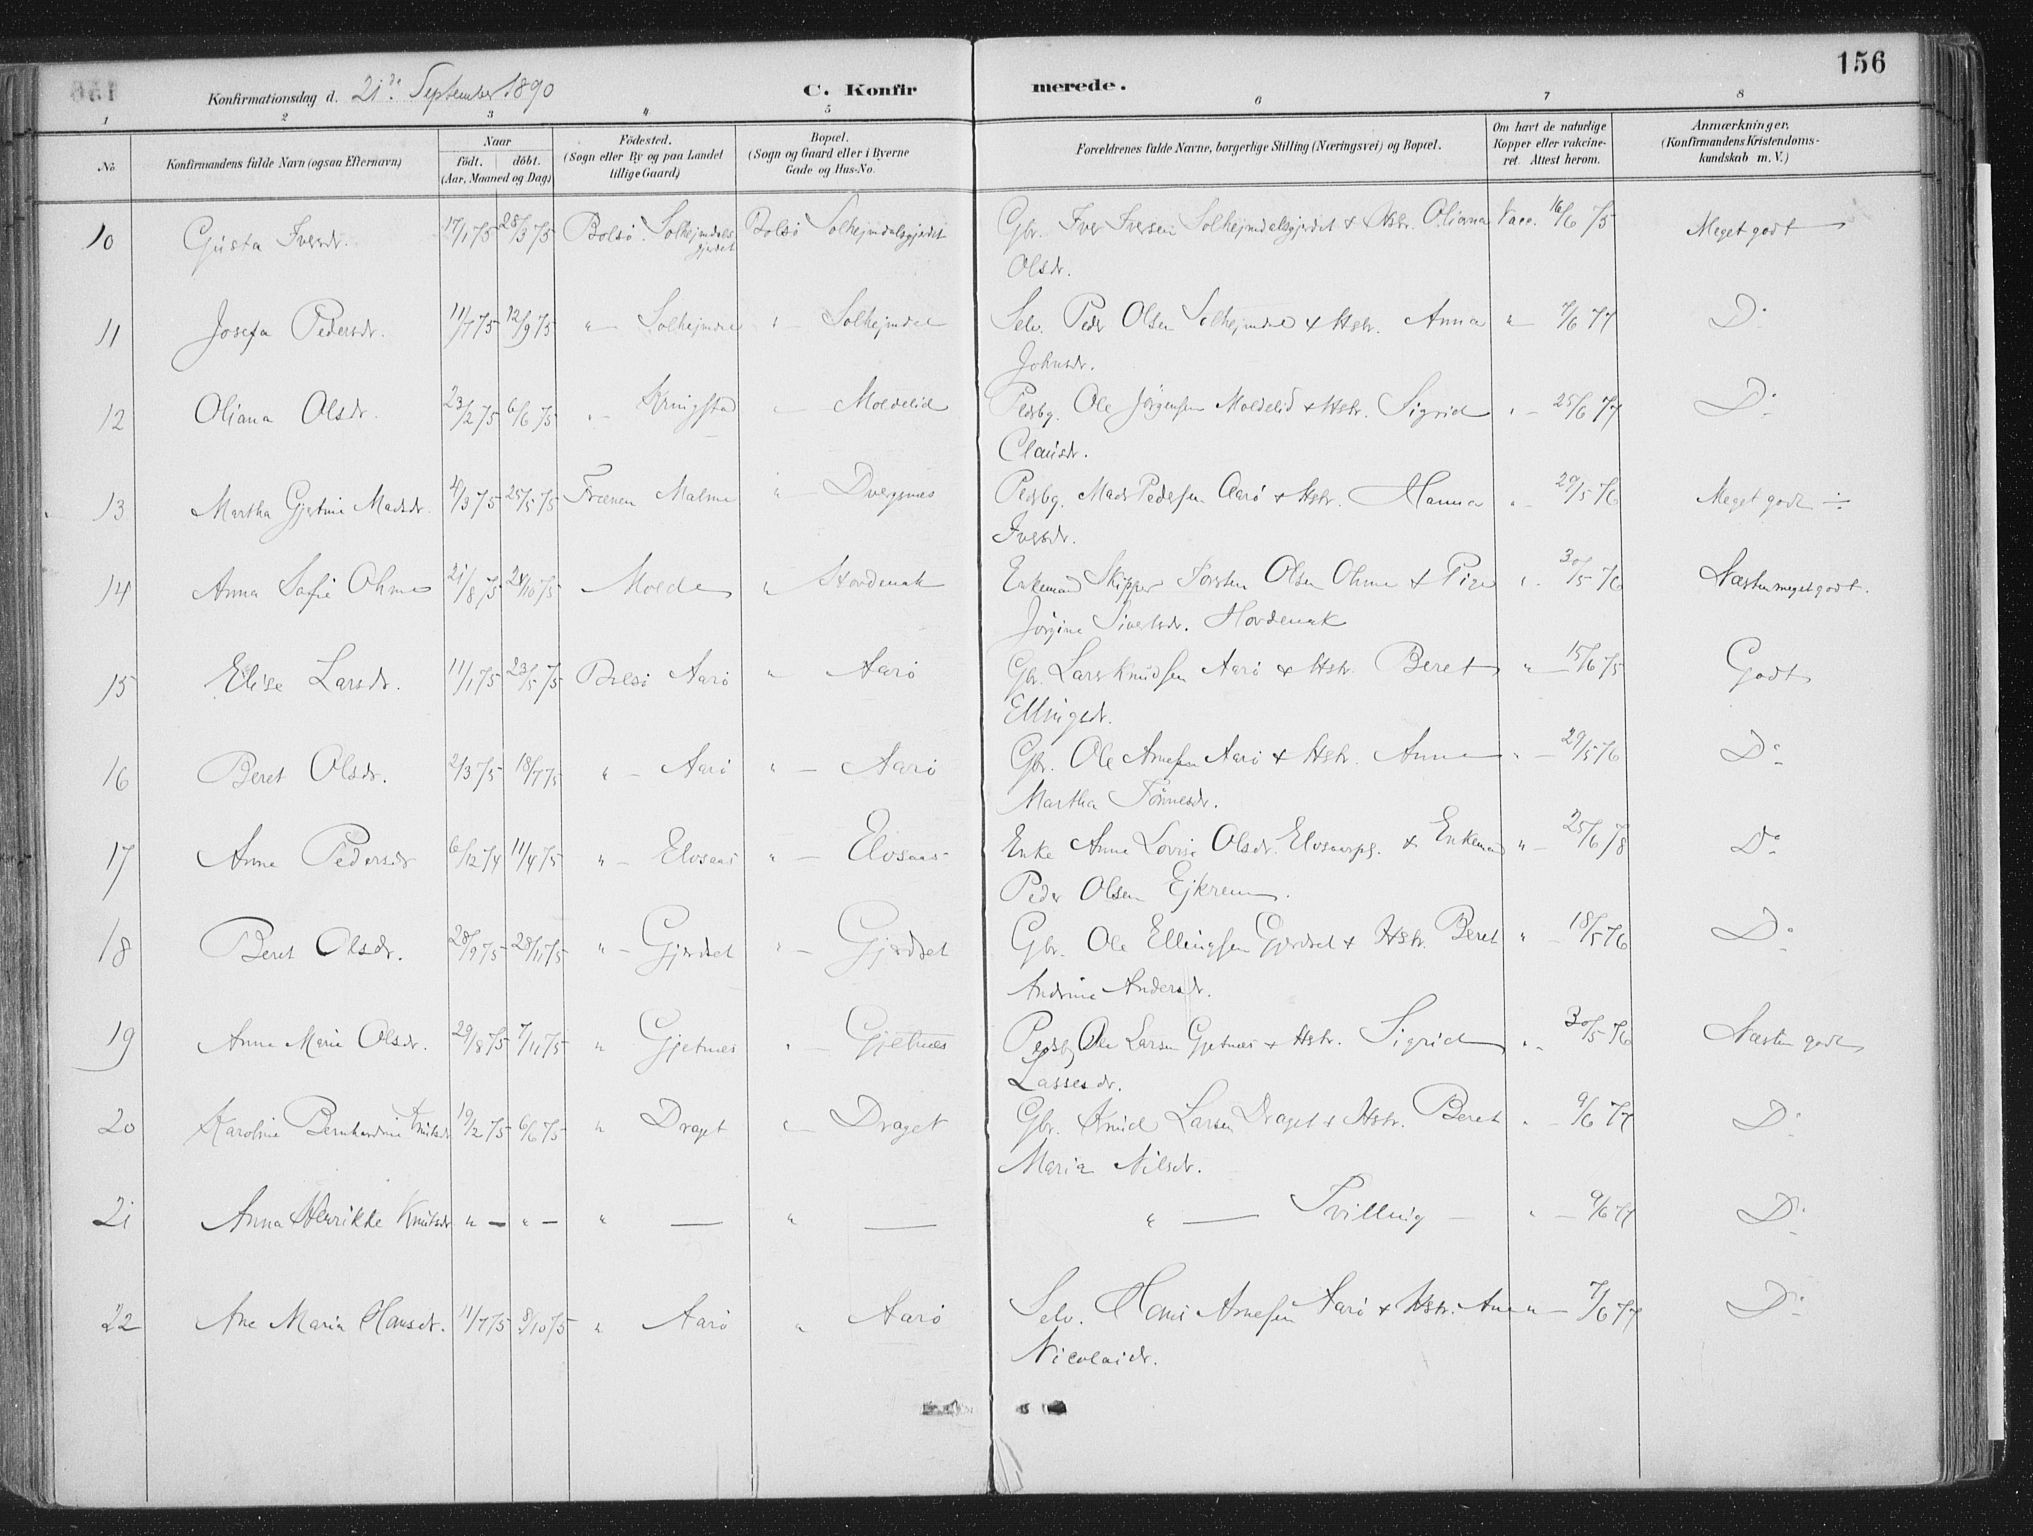 156
Konfirmationsdag d. 21de September 1890 C. Konfir merede.
1 2 3 4 5 6 7 8
No
Konfirmandens fulde Navn (ogsaa Efternavn)
Naar
födt. döbt.
(Aar, Maaned og Dag)
Födested.
(Sogn eller By og paa Landet
tillige Gaard)
Bopæl.
(Sogn og Gaard eller i Byerne
Gade og Hus-No.
Forældrenes fulde Navne, borgerlige Stilling (Næringsvei) og Bopæl.
Om havt de naturlige
Kopper eller vakcine-
ret. Attest herom.
Anmærkninger.
(Konfirmandens Kristendoms-
kundskab m. V.)
10 Gusta Iversdr. 17/1 75 28/3 75 Bolsö Solhejmdals Bolsö Solhejmdalsgjerdet Gbr. Iver Iversen Solhejmdalsgjerdet & Hstr. Oliana Vacc. 16/6 75 Meget godt
gjerdet
Olsdr.
11 Josefa Pedersdr. 11/7 75 12/9 75 " — Solhejmdal " — Solhejmdal Selv. Peder Olsen Solhejmdal & Hstr. Anna " 7/6 77 Do
Johnsdr.
12 Oliana Olsdr. 23/2 75 6/6 75 " — Kringstad " — Moldelid Pladsbg. Ole Jörgensen Moldelid & Hstr. Sigrid " — 25/6 77 Do
Clausdr.
13 Martha Gjertine Madsdr. 4/3 75 25/5 75 Frænen Malme " — Dvergsnes Pladsbg. Mads Pedersen Aarö & Hstr. Hanna " — 29/5 76 Meget godt ÷
Iversdr.
14 Anna Sofie Ohme 21/8 75 24/10 75 Molde " Hovdenak Enkemand Skipper Torsten Olsen Ohme & Pige " 30/5 76 Næsten meget godt.
Jörgine Sivertsdr. Hovdenak
15 Elise Larsdr. 11/1 75 23/5 75 Bolsö Aarö " Aarö Gbr. Lars Knudsen Aarö & Hstr. Beret " — 15/6 75 Godt
Ellingsdr.
16 Beret Olsdr. 2/3 75 18/7 75 " — Aarö " — Aarö Gbr. Ole Arnesen Aarö & Hstr. Anne " — 29/5 76 Do
Martha Tönnesdr.
17 Anne Pedersdr 6/12 74 11/4 75 " — Elvsaas " — Elvsaas Enke Anne Lovise Olsdr. Elvsaaspl. & Enkemand " — 25/6 78 Do
Peder Olsen Ejkrem.
18 Beret Olsdr. 28/9 75 28/11 75 " — Gjerdset " — Gjerdset Gbr. Ole Ellingsen Gjerdset & Hstr. Beret " — 18/5 76 Do
Andrine Andersdr.
19 Anne Marie Olsdr. 29/8 75 7/11 75 " Gjetnæs " — Gjetnæs Pladsbg Ole Larsen Gjetnæs & Hstr. Sigrid " — 30/5 76 Næsten godt
Lassesdr.
20 Karoline Bernhardine Knutsdr 19/2 75 6/6 75 " Draget " — Draget Gbr. Knud Larsen Draget & Hstr. Beret " — 9/6 77 Do
Maria Nilsdr.
21 Anna Henrikke Knutsdr " — " — " — " — " — Tvilling — " — 9/6 77 Do
22 Ane Maria Hansdr. 11/7 75 8/10 75 " Aarö " Aarö Selv. Hans Arnesen Aarö & Hstr. Ane " — 7/6 77 Do
Nicolaidr.